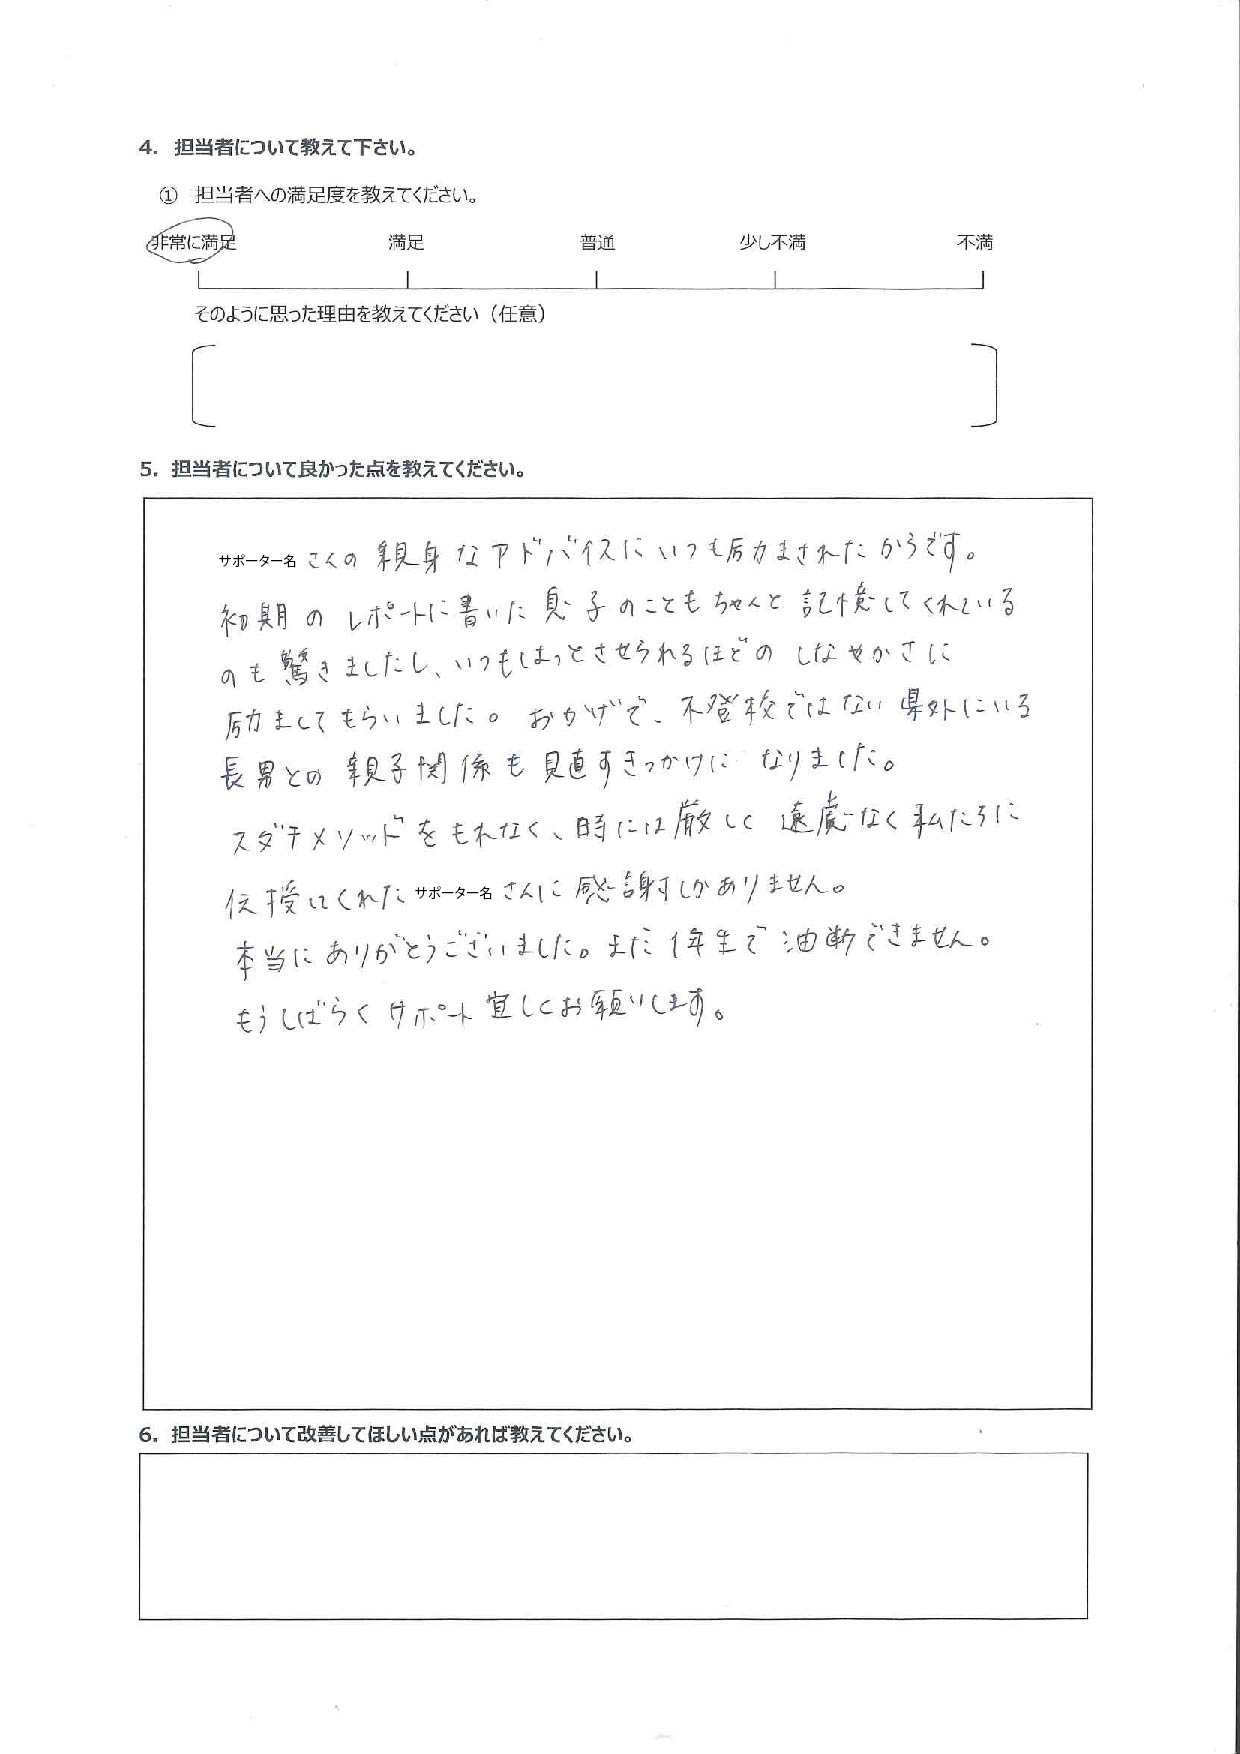 4. 担当者について教えて下さい。
① 担当者への満足度を教えてください。
非常に満足 満足 普通 少し不満 不満
そのように思った理由を教えてください（任意）
5. 担当者について良かった点を教えてください。
サポーター名 さんの 親身なアドバイスにいつも励まされたからです。
初期のレポートに書いた息子のこともちゃんと記憶してくれている
のも驚きましたし、いつもはっとさせられるほどのしなやかさに
励ましてもらいました。おかげで、不登校ではない県外にいる
長男との親子関係も見直すきっかけになりました。
スダチメソッドをもれなく、時には厳しく遠慮なく私たちに
伝授してくれた サポーター名 さんに感謝しかありません。
本当にありがとうございました。まだ1年生で油断できません。
もうしばらくサポート宜しくお願いします。
6. 担当者について改善してほしい点があれば教えてください。